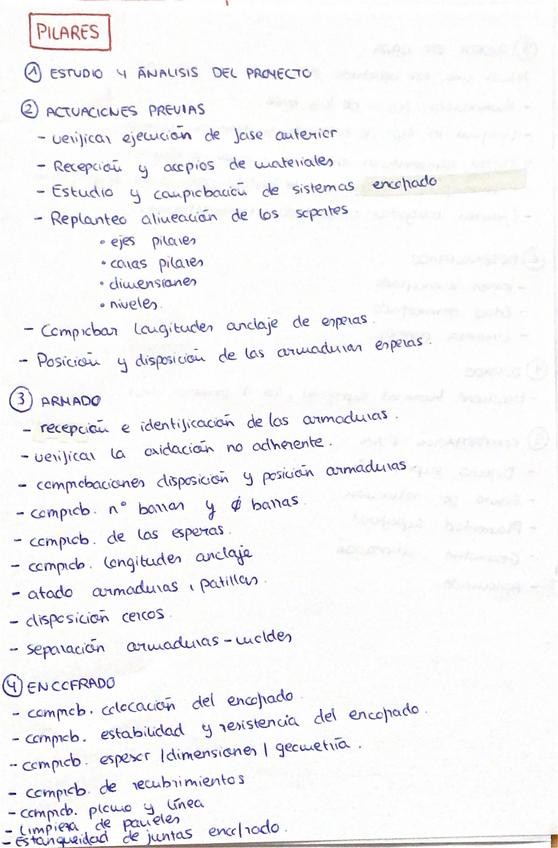 PILARES
① ESTUDIO Y ÁNALISIS DEL PROYECTO
② ACTUACIONES PREVIAS
- verificar ejecución de fase anterior
- Recepción y acopios de materiales
- Estudio y comprobación de sistemas encofrado
- Replanteo alineación de los soportes
• ejes pilares
• caras pilares
• dimensiones
• niveles.
- Comprobar longitudes anclaje de esperas.
- Posición y disposición de las armaduras esperas.
③ ARMADO
- recepción e identificación de las armaduras.
- verificar la oxidación no adherente.
- comprobaciones disposición y posición armaduras
- comprob. nº barras y ϕ barras.
- comprob. de las esperas.
- comprob. longitudes anclaje
- atado armaduras, patillas.
- disposición cercos.
- separación armaduras - moldes
④ ENCOFRADO
- comprob. colocación del encofrado.
- comprob. estabilidad y resistencia del encofrado.
- comprob. espesor / dimensiones / geometría.
- comprob. de recubrimientos
- comprob. plomo y línea
- Limpieza de paneles
- Estanqueidad de juntas encofrado.